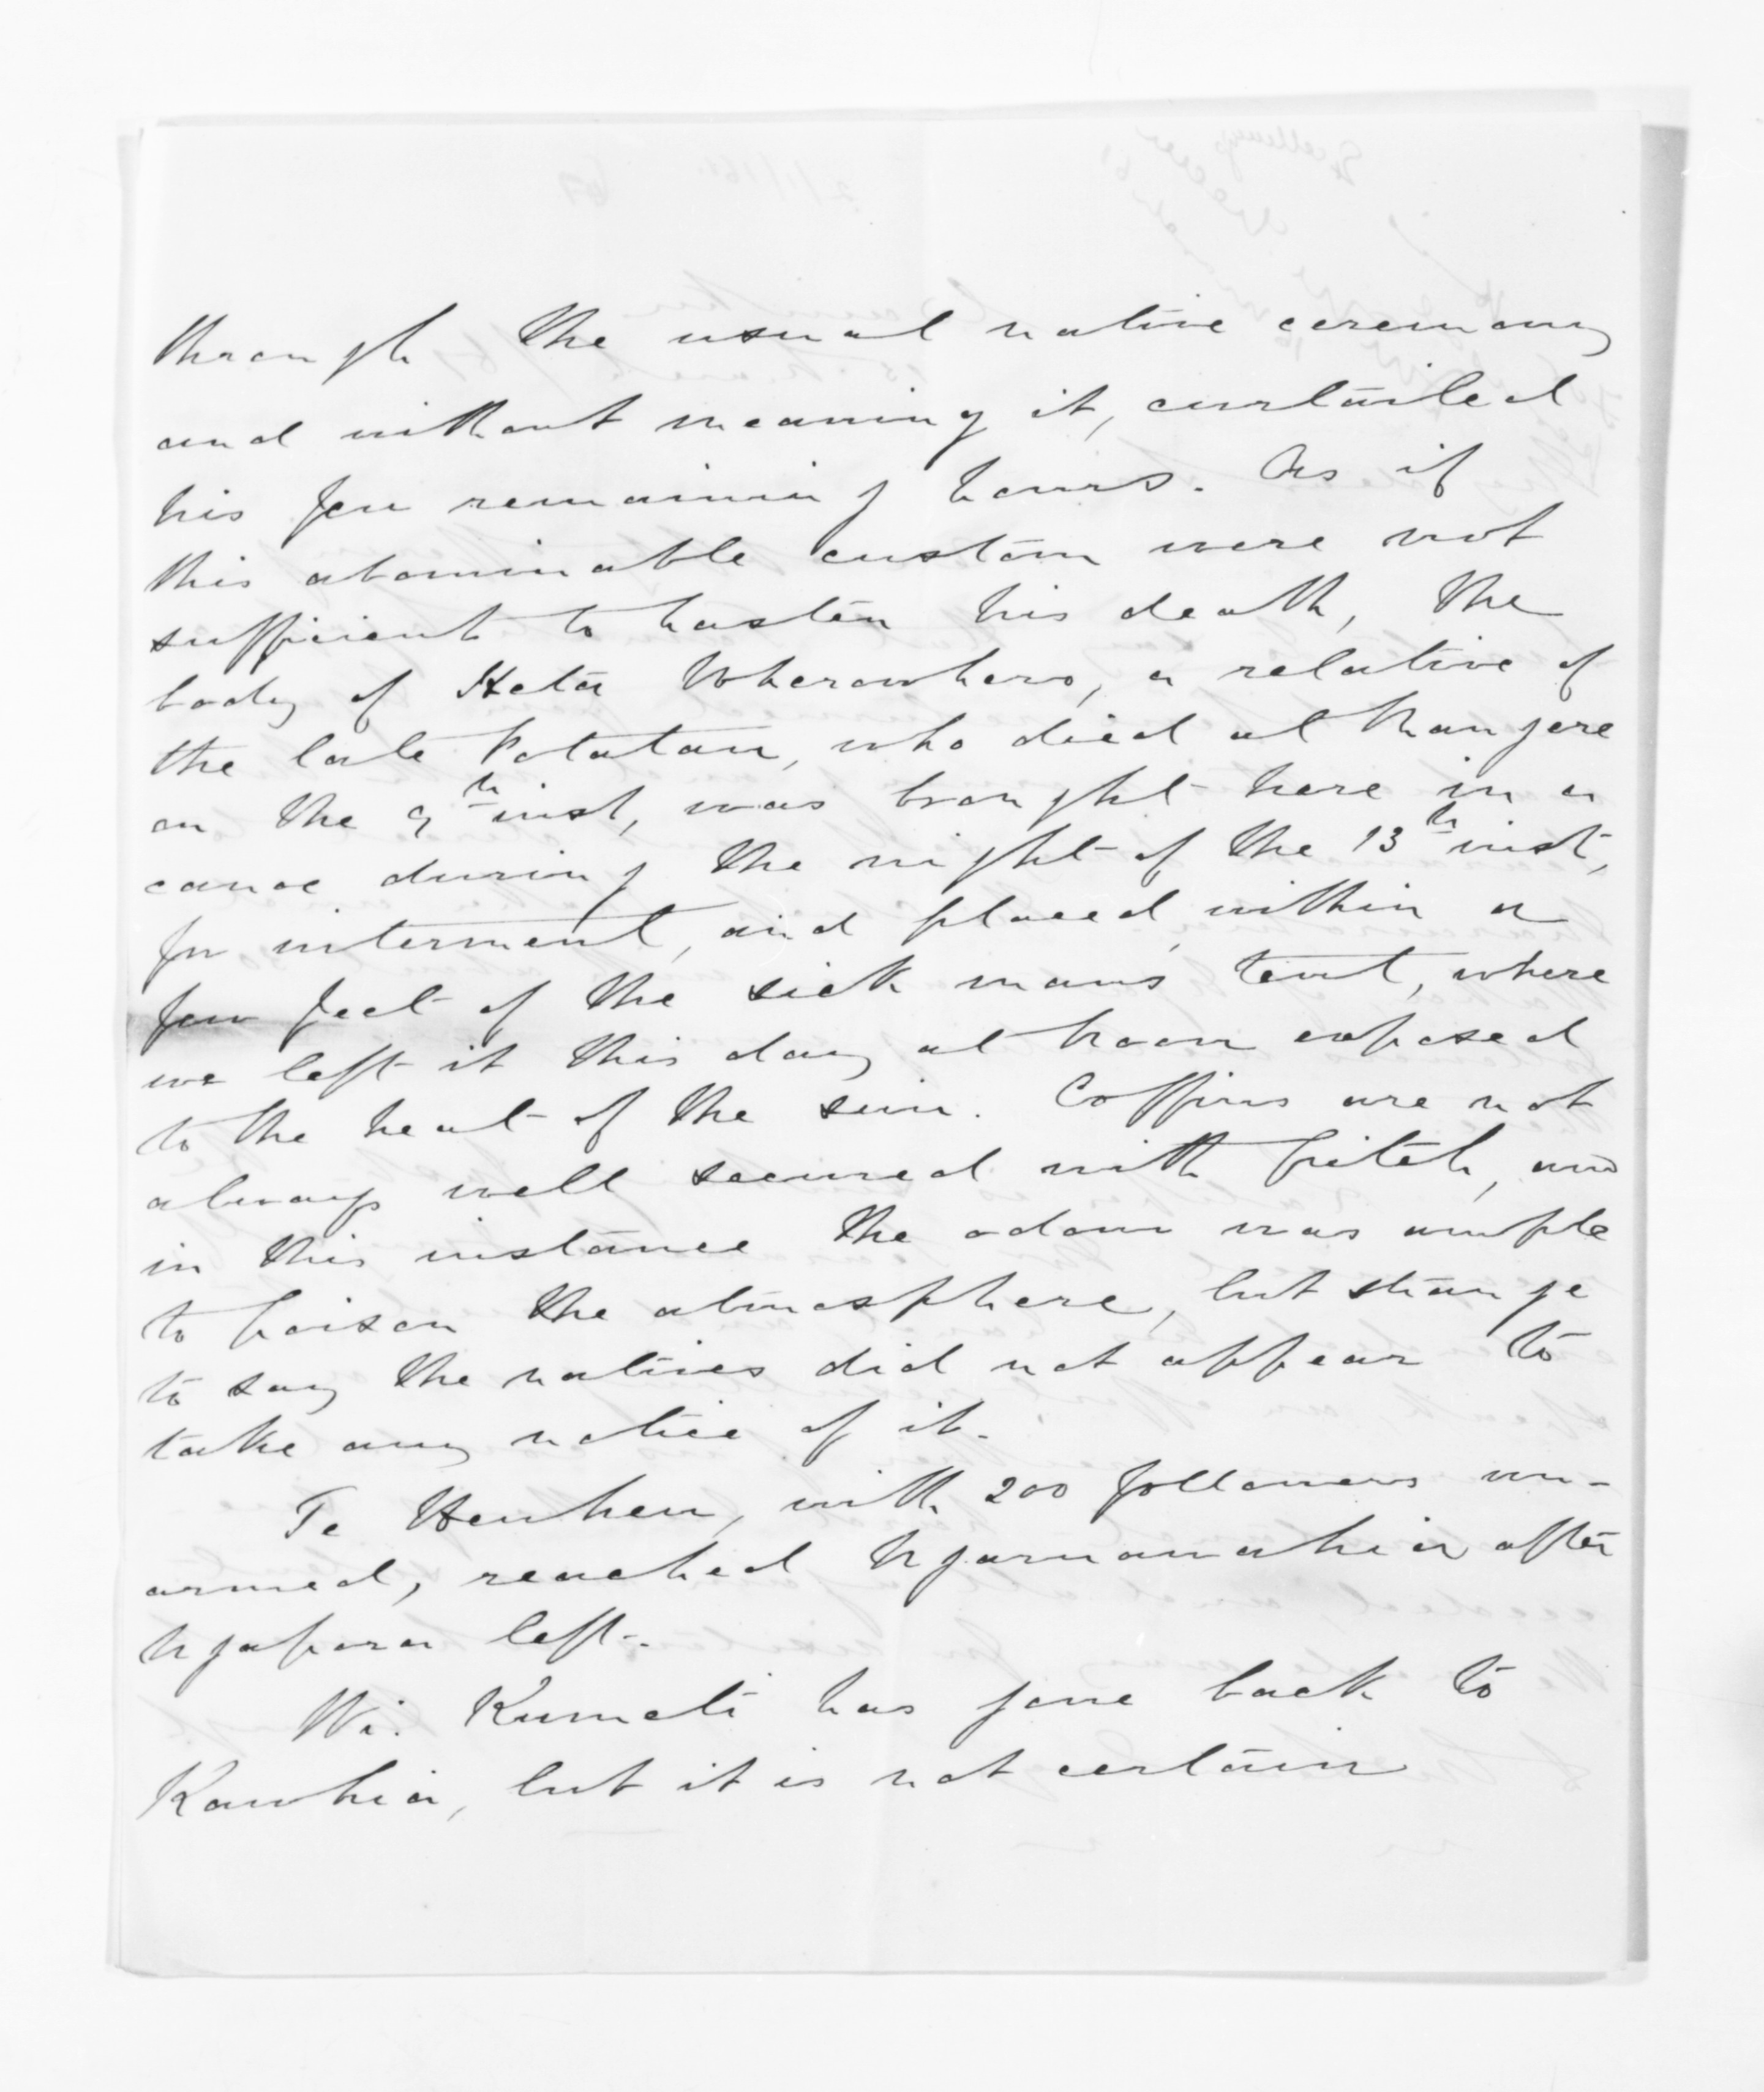 through the usual native ceremony
and without meaning it, curtailed
his few remaining hours. As if
this abominable custom were not
sufficient to hasten his death, the
body of Heta Wherowhero, a relative of
the late Potatau, who died at Mangere
on the 9th inst, was brought here in a
canoe during the night of the 13th inst,
for interment, and placed within a
few feet of the sick mans tent, where
we left it this day at noon exposed
to the heat of the sun. Coffins are not
always well secured with pitch, and
in this instance the odour was ample
to poison the atmosphere, but strange
to say the natives did not appear to
take any notice of it.
Te Heuheu, with 200 followers un-
armed, reached Ngaruawahia after
Ngapora left.
Wi. Kumeti has gone back to
Kawhia, but it is not certain